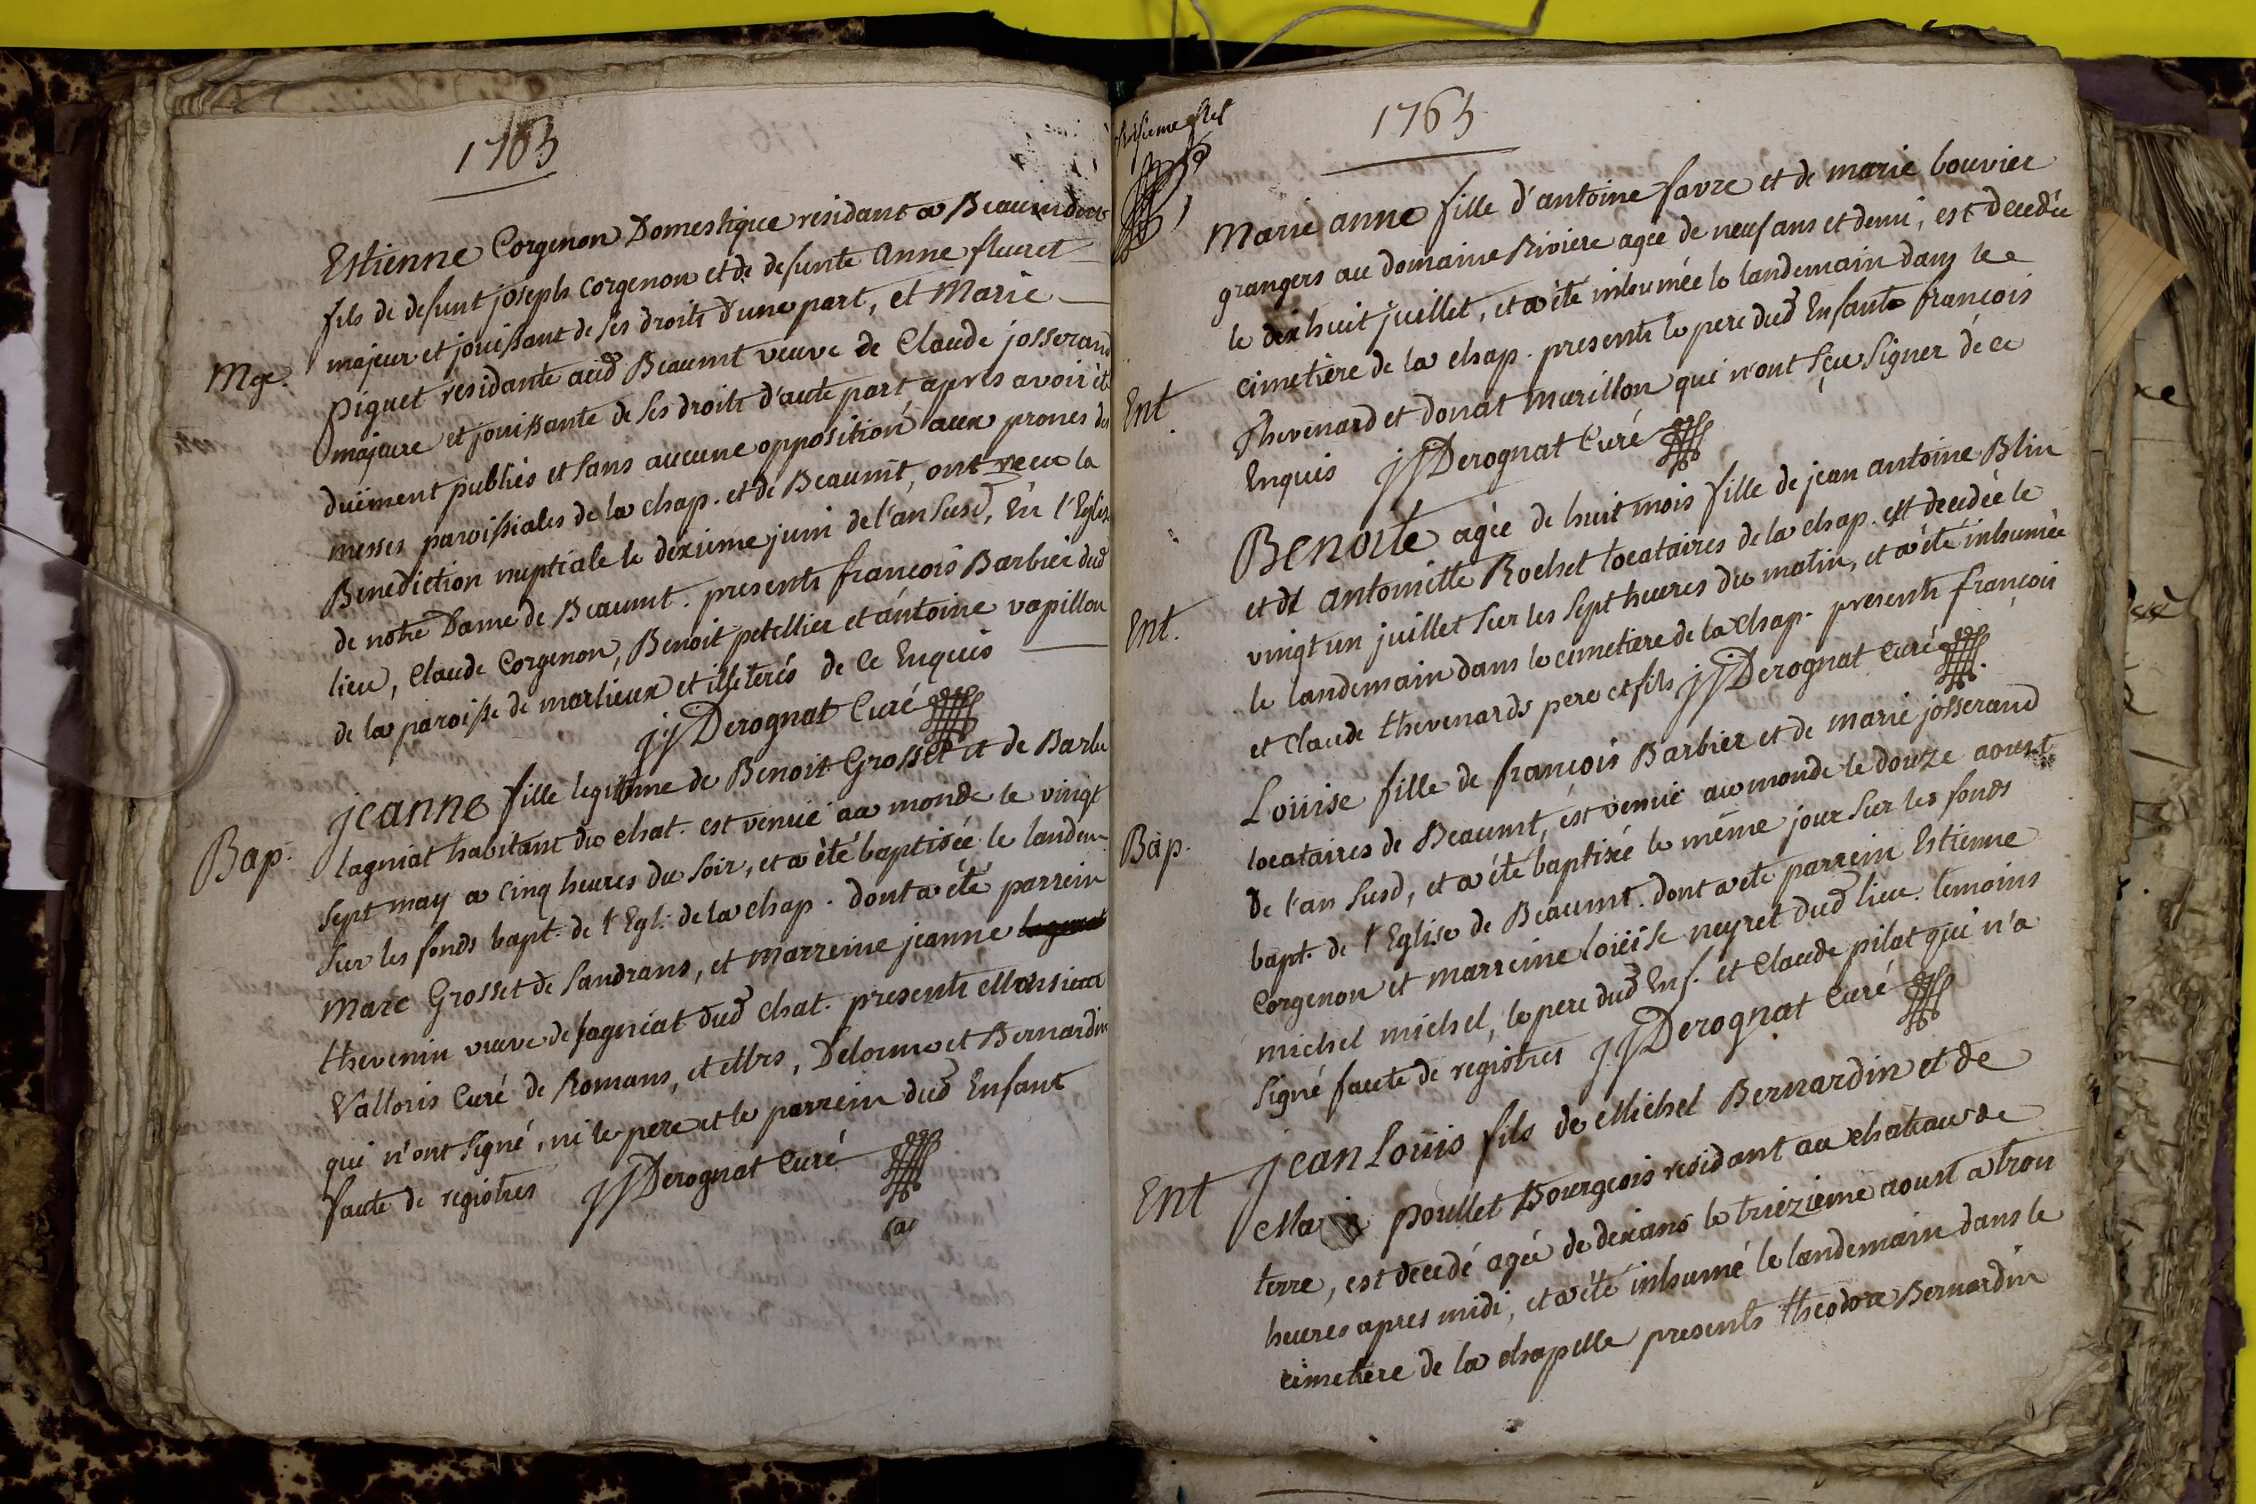 1763
Estienne Corgenon Domestique residant a Beaumt dioc
fils de defunt joseph corgenon et de defunte Anne fleuret
majeur et jouissant de ses droits d'une part, et Marie
Mge.
piquet residante aud Beaumt veuve de Claude josserand
majeure et jouissante de ses droits d'aute part, apres avoir été
duëment publiés et sans aucune opposition aux prones des
messes paroissiales de la chap. et de Beaumt, ont recu la
Benediction nuptiale le dixieme juin de l'an susd, En l'Eglise
de notre Dame de Beaumt. presents francois Barbier dud
lieu, Claude Corgenon, Benoit petellier et antoine vapillon
de la paroisse de marlieux et illeterés de ce Enquis
jjDerognat Curé
jeanne fille legitime de Benoit Grosset et de Barbe
Bap.
lagniat habitant du chat. est venuë au monde le vingt
sept may a cinq heures du soir, et a été baptisée le landem
sur les fonds bapt. de l'Egl. de la chap. dont a été parrein
Marc Grosset de Sandrans, et marreine jeanne
thevenin veuve de lagniat dud chat. presents Monsieur
Valloris Curé de Romans, et Mrs, Delorme et Bernardin
qui n'ont signé, ni le pere et le parrein dud Enfant
faute de registres jjDerognat Curé
1763
Marie anne fille d'antoine favre et de marie bouvier
grangers au domaine Riviere agée de neuf ans et demi, est decedée
le dix huit juillet, et a été inhumée le landemain dans le
cimetière de la chap. presents le pere dud Enfante francois
Ent.
Thevenard et donat Murillon qui n'ont sçu signer de ce
Enquis jjDerognat Curé
Benoite agée de huit mois fille de jean antoine Blin
et de antoinette Rochet locataires de la chap. est decedée le
Ent.
vingt un juillet sur les sept heures du matin, et a été inhumée
le landemain dans le cimetiere de la chap. presents françois
et claude thevenards pere et fils jjDerognat Curé
Loüise fille de françois Barbier et de marie josserand
Bap.
locataires de Beaumt, est venuë au monde le douze aoust
de l'an susd, et a été baptisée le même jour sur les fonds
bapt. de l'Eglise de Beaumt. dont a été parrein Estienne
Corgenon et marreine loüise neyret dud lieu. temoins
michel michel, le pere dud Enf. et Claude pilat qui n'a
signé faute de registres jjDerognat Curé
jean Loüis fils de Michel Bernardin et de
Ent
poullet Bourgeois residant au chateau de
terre, est decedé agée de dixans le treizieme aoust a trois
heures apres midi, et a été inhumé le landemain dans le
cimetiere de la chapelle presents theodore Bernardin